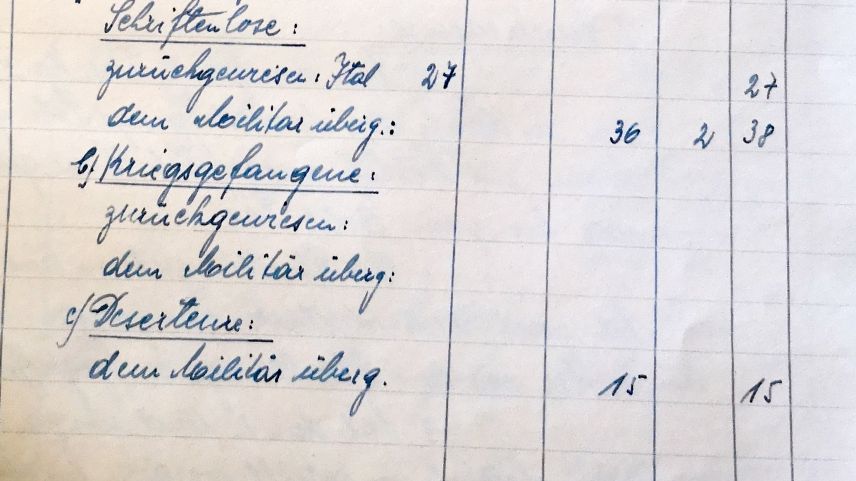 Schriftenlose:
zurückgewiesen: Ital 27 27
dem Militär überg.: 36 2 38
b) Kriegsgefangene:
zurückgewiesen:
dem Militär überg:
c) Deserteure:
dem Militär überg. 15 15